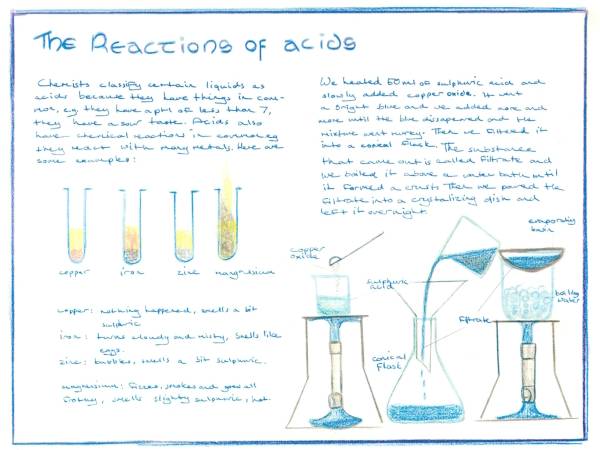 The Reactions of acids
Chemists classify certain liquids as
acids because they have things in com-
mon, eg. they have a pH of less than 7,
they have a sour taste. Acids also
have chemical reactions in common eg
they react with many metals. Here are
some examples:
copper iron zinc magnesium
copper: nothing happened, smells a bit
sulphuric
iron: turns cloudy and misty, smells like
eggs.
zinc: bubbles, smells a bit sulphuric.
magnesium: fizzes, smokes and goes all
frothy, smells slighty sulphuric, hot.
We heated 50ml of sulphuric acid and
slowly added copper oxide. It went
a bright blue and we added more and
more until the blue dissapeared and the
mixture went murky. Then we filtered it
into a conical flask. The substance
that came out is called filtrate and
we boiled it above a water bath until
it formed a crust. Then we poured the
filtrate into a crystalizing dish and
left it overnight.
copper
oxide
sulphuric
acid
evaporating
basin
boiling
water
filtrate
conical
flask